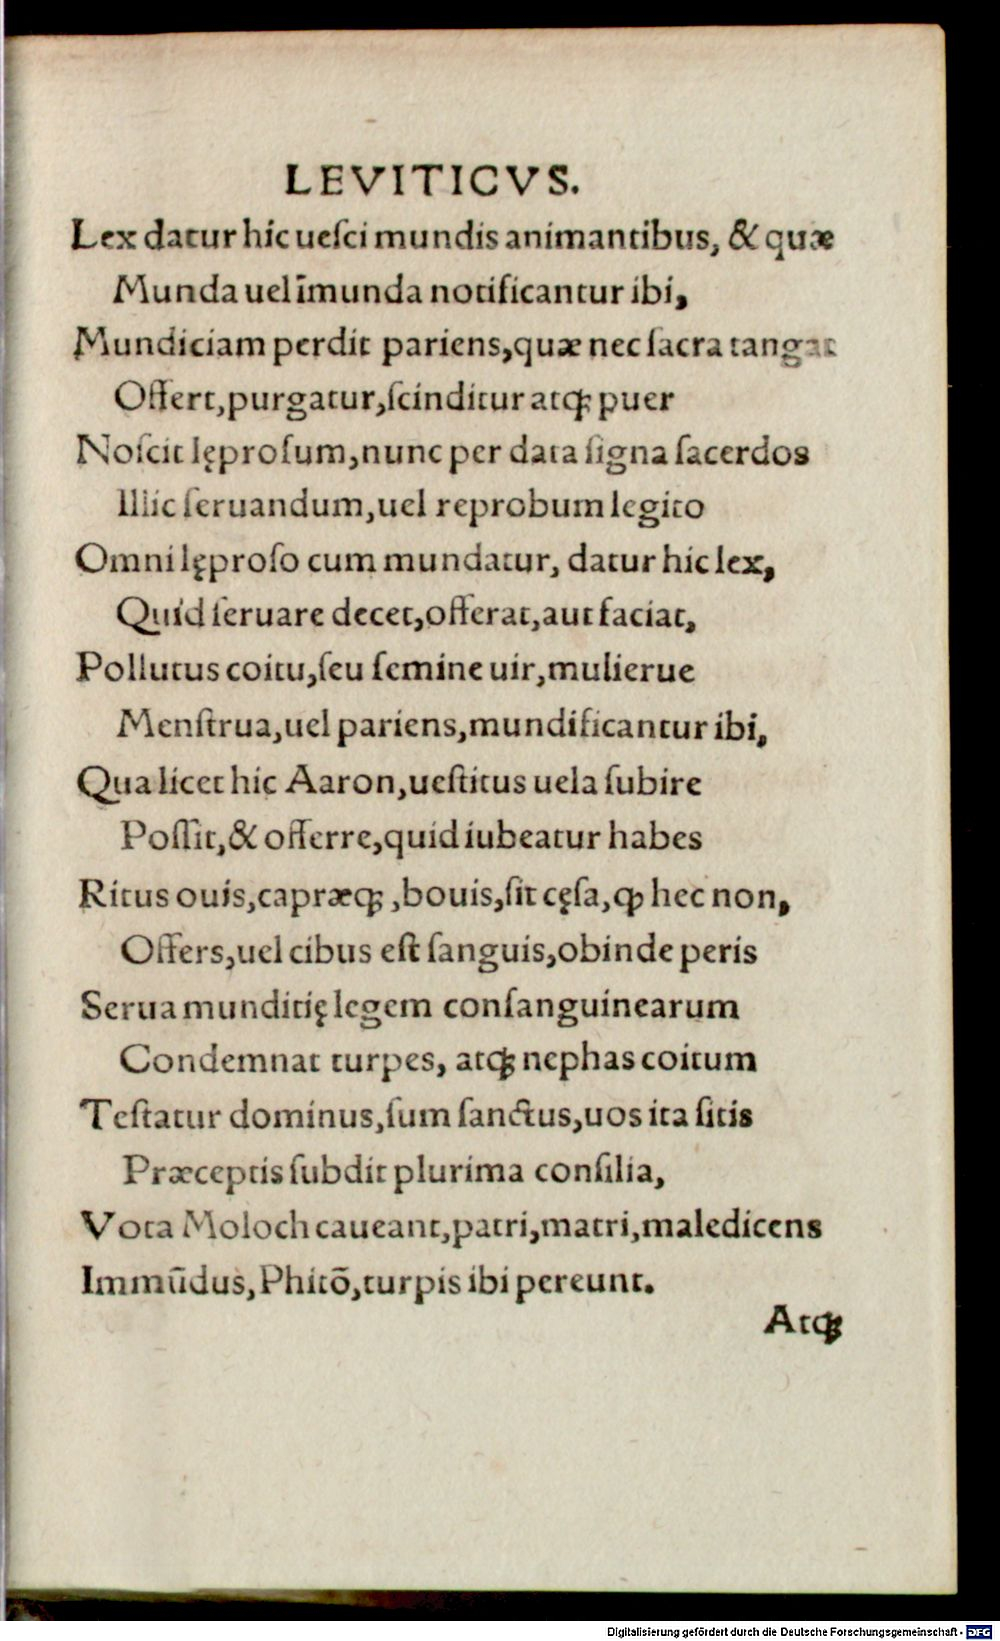 LEVITICVS.
Lex datur hic ueſci mundis animantibus, & quæ
Munda uel īmunda notificantur ibi,
Mundiciam perdit pariens,quæ nec ſacra tangat
Offert,purgatur,ſcinditur atqꝫ puer
Noſcit lęproſum,nunc per data ſigna ſacerdos
Illic ſeruandum,uel reprobum legito
Omni lęproſo cum mundatur, datur hic lex,
Quid ſeruare decet,offerat,aut faciat,
Pollutus coitu,ſeu ſemine uir,mulierue
Menſtrua,uel pariens,mundificantur ibi,
Qua licet hic Aaron,ueſtitus uela ſubire
Poſſit,& offerre,quid iubeatur habes
Ritus ouis,capræqꝫ ,bouis,ſit cęſa,ꝙ hec non,
Offers,uel cibus eſt ſanguis,obinde peris
Serua munditię legem conſanguinearum
Condemnat turpes, atqꝫ nephas coitum
Teſtatur dominus,ſum ſanctus,uos ita ſitis
Præceptis ſubdit plurima conſilia,
Vota Moloch caueant,patri,matri,maledicens
Immūdus,Phitō,turpis ibi pereunt.
Atqꝫ
Digitalisierung gefördert durch die Deutsche Forschungsgemeinschaft - DFG